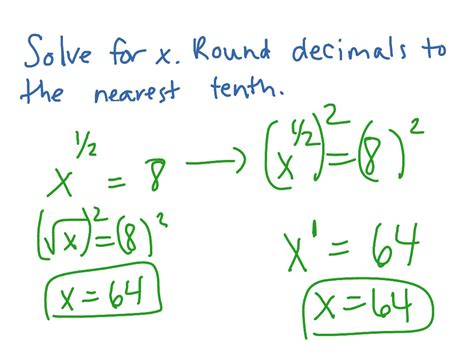 Solve for x. Round decimals to
the nearest tenth.
x^{1/2} = 8 → (x^{1/2})^2 = (8)^2
(√x)^2 = (8)^2
x = 64
x^1 = 64
x = 64